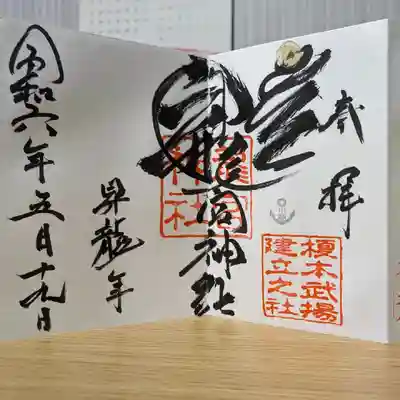 奉拝
榎本武揚
建立之社
龍宮神社
昇龍年
令和六年五月十九日